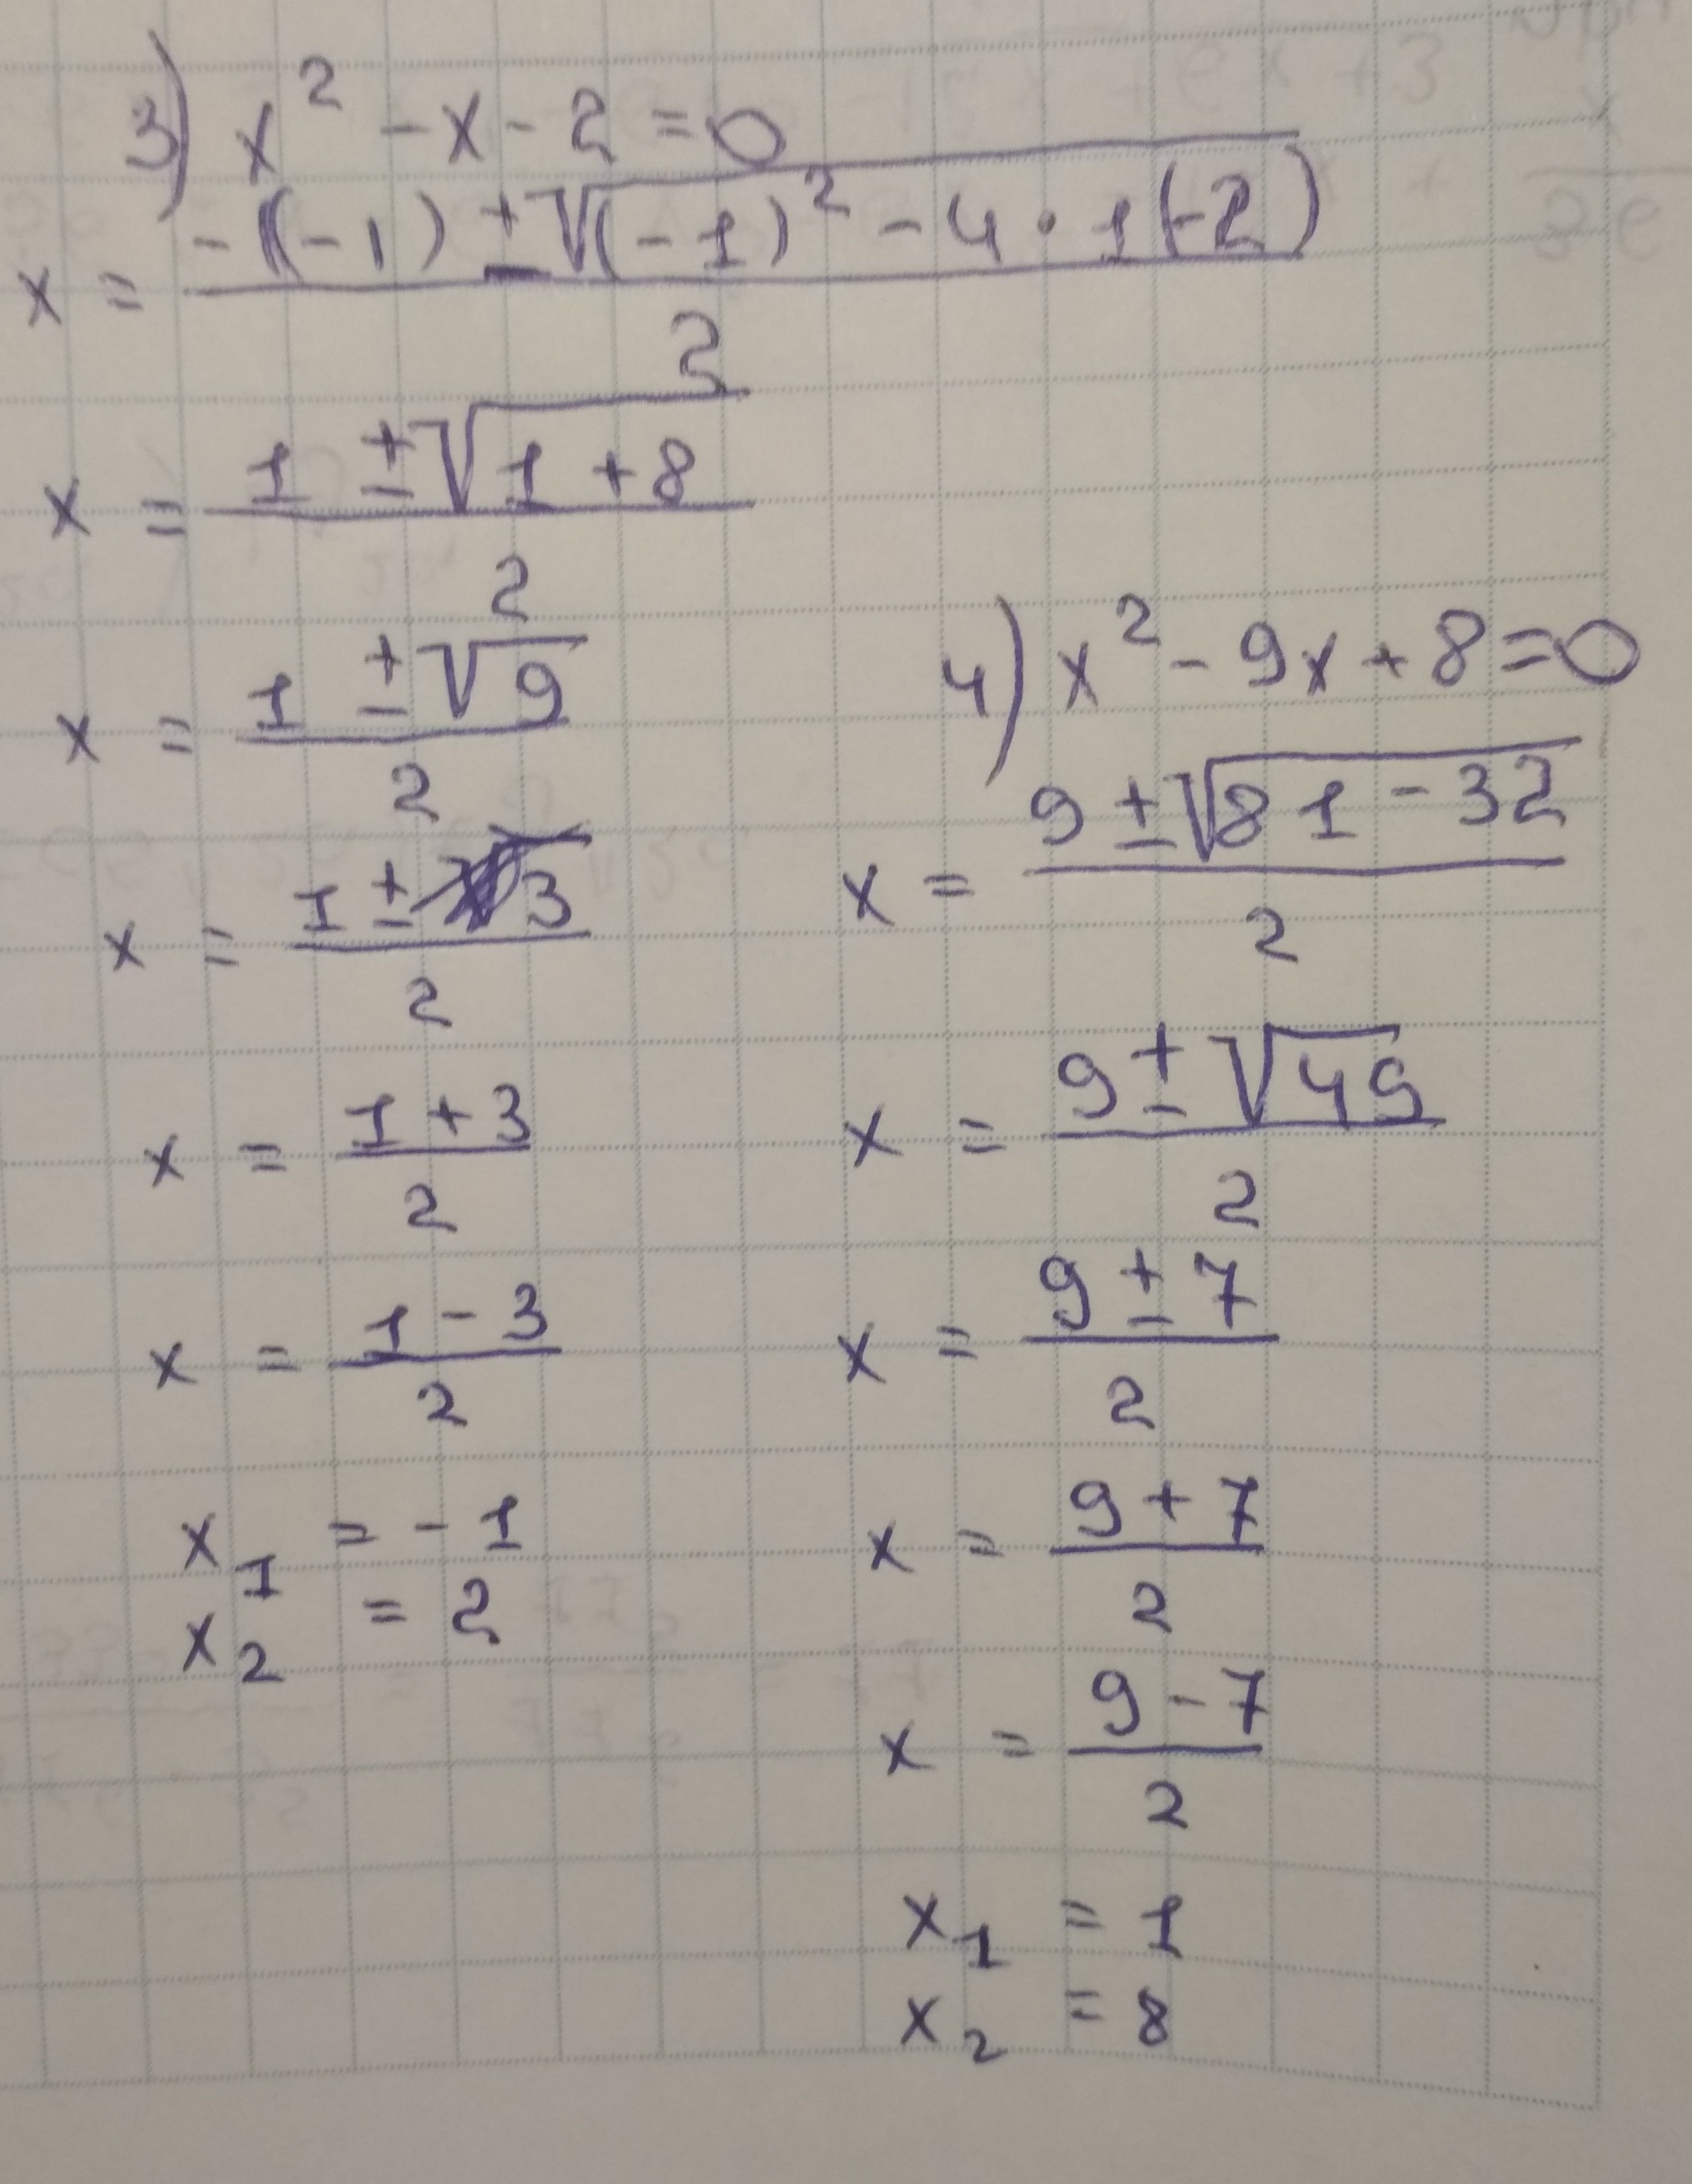 3) x² - x - 2 = 0
x = (-(-1) ± √((-1)² - 4 · 1(-2)))/2
x = (1 ± √(1 + 8))/2
x = (1 ± √9)/2
x = (1 ± 3)/2
x = (1 + 3)/2
x = (1 - 3)/2
x₁ = -1
x₂ = 2
4) x² - 9x + 8 = 0
x = (9 ± √(81 - 32))/2
x = (9 ± √49)/2
x = (9 ± 7)/2
x = (9 + 7)/2
x = (9 - 7)/2
x₁ = 1
x₂ = 8